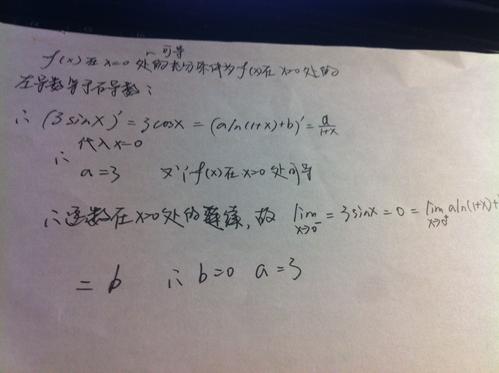 可导
f(x)在x=0处的充分条件为f(x)在x=0处的
左导数等于右导数;
∴ (3sinx)'=3cosx=(aln(1+x)+b)'=a/(1+x)
代入x=0
∴ a=3 又∵f(x)在x=0处可导
∴函数在x=0处的连续,故 lim x→0⁻ =3sinx=0=lim x→0⁺ aln(1+x)+
=b ∴b=0 a=3